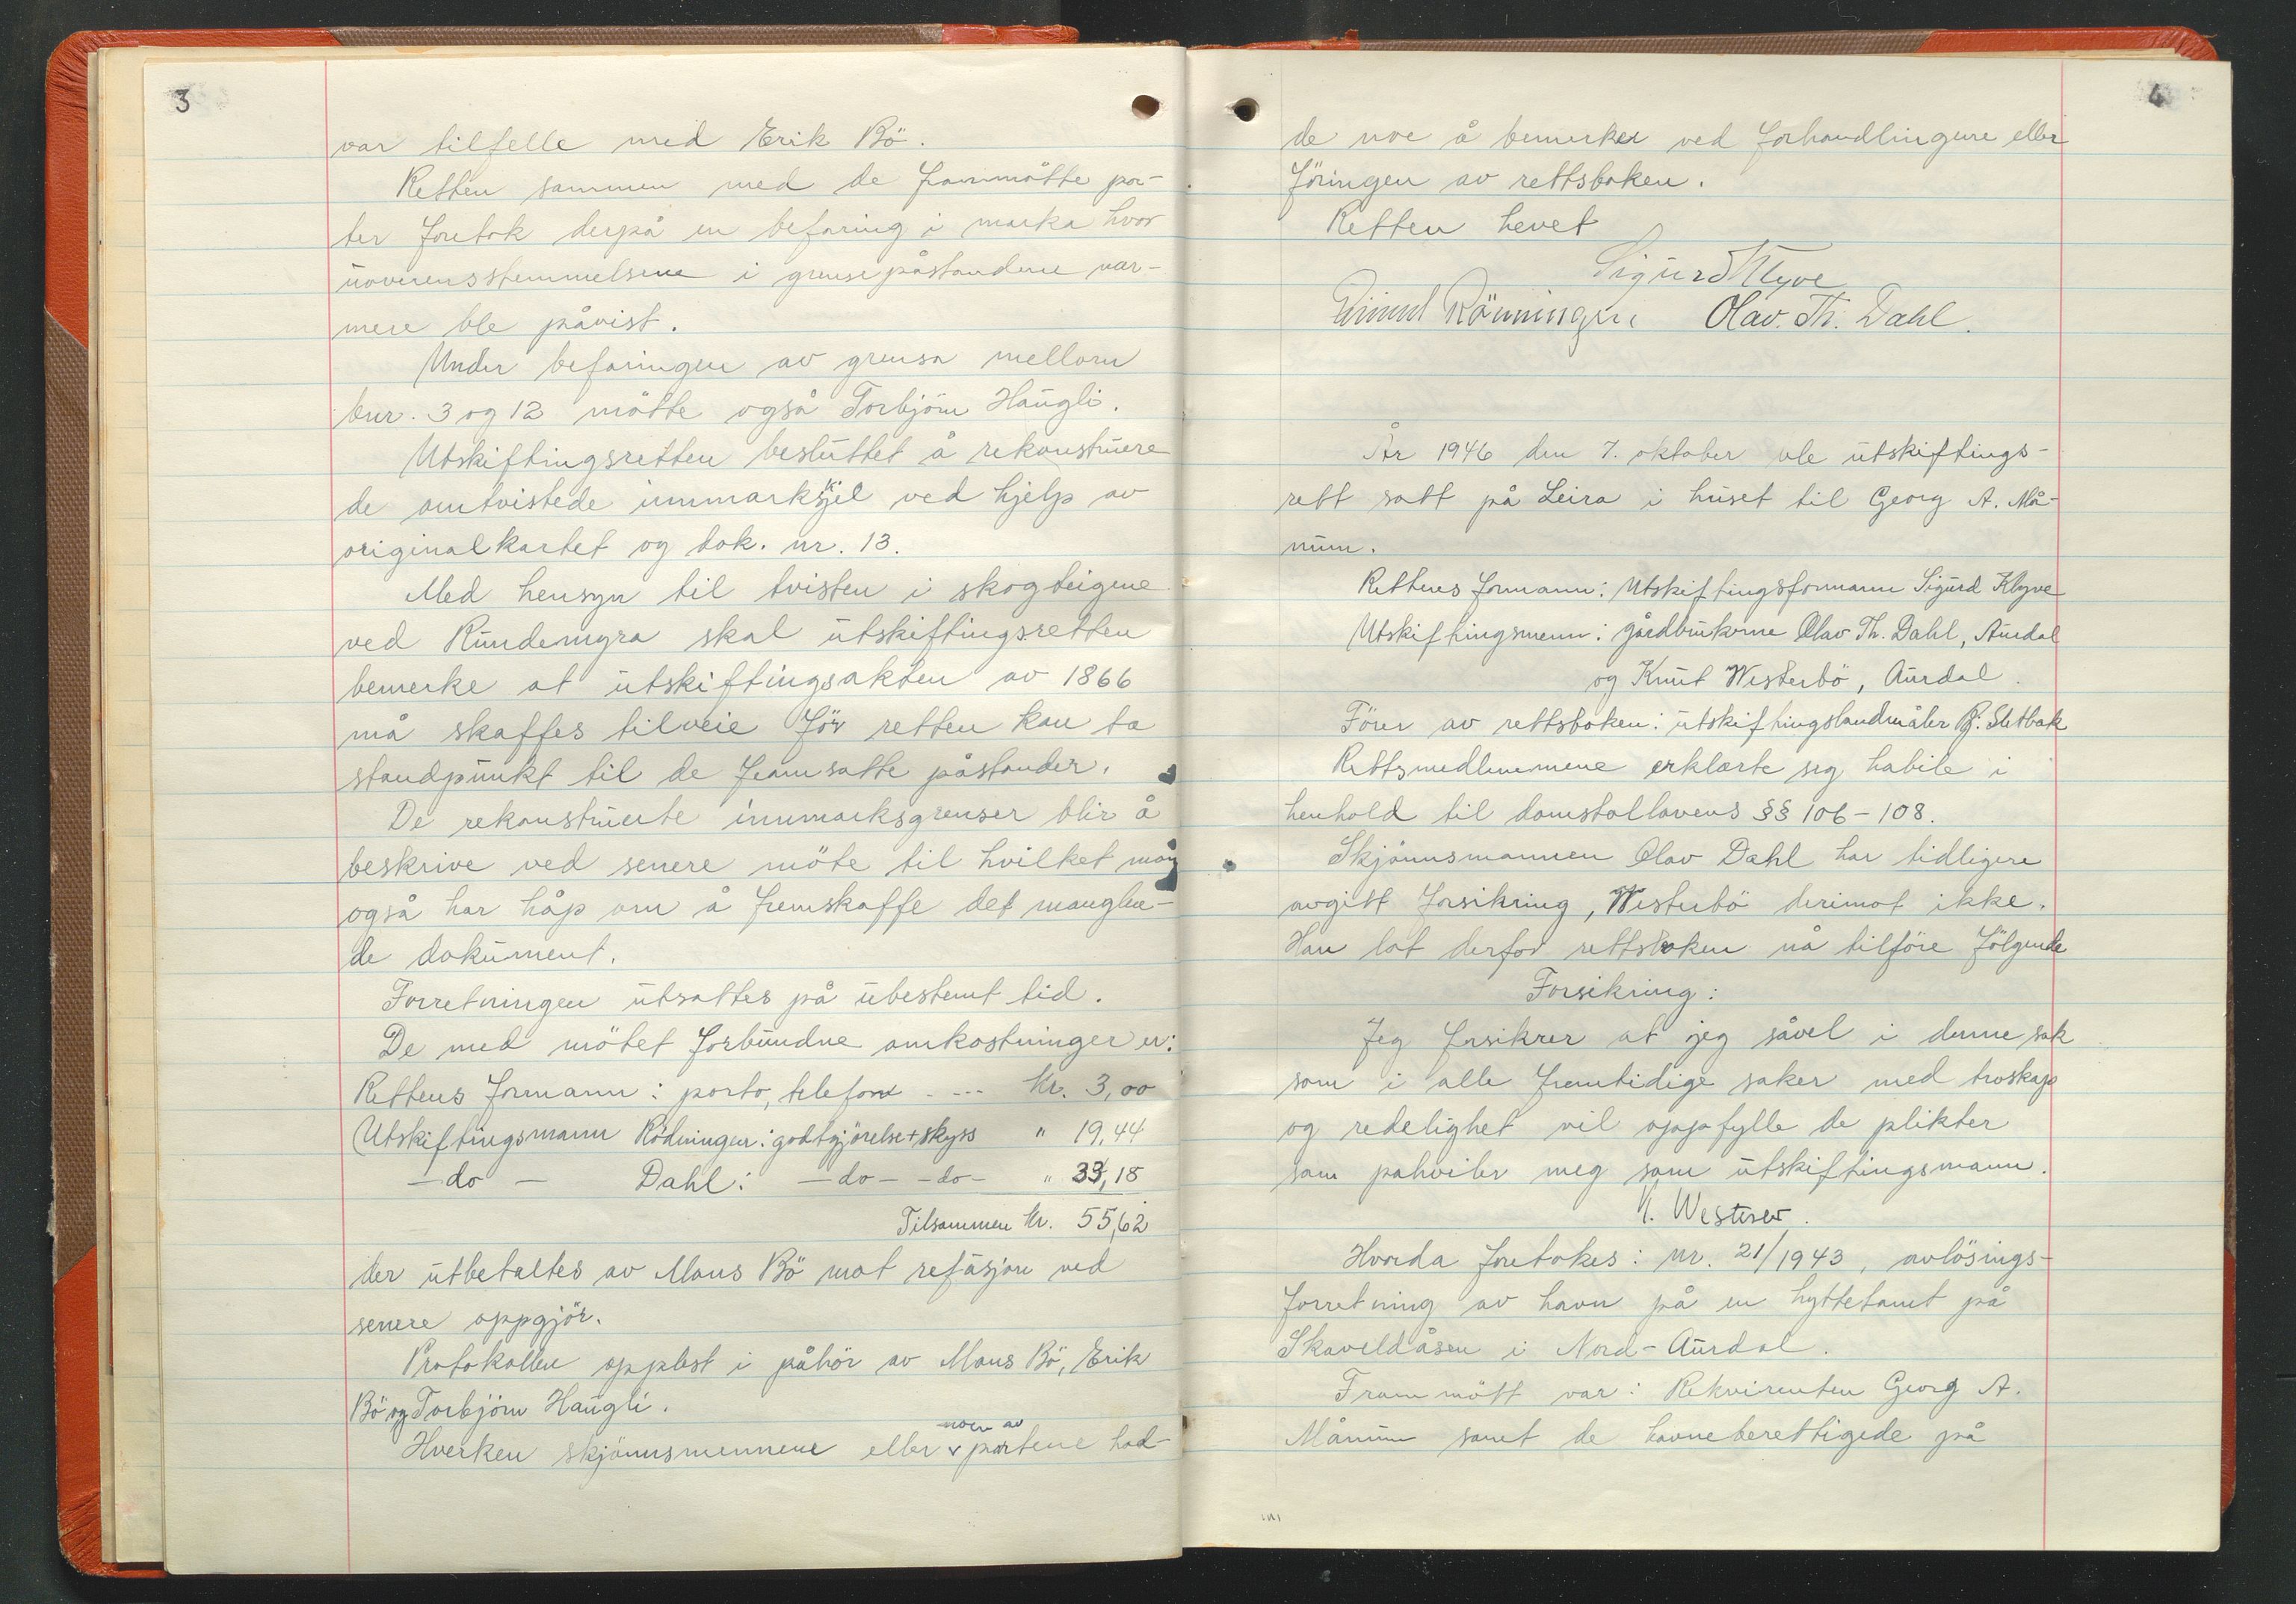 3
var tilfelle med Erik Bö.
Retten sammen med de frammötte par-
ter foretok derpå en befaring i marka hvor
uoverensstemmelsene i grensepåstandene nær-
mere ble påvist.
Under befaringen av grensa mellom
bnr. 3 og 12 mötte også Torbjörn Haugli.
Utskiftingsretten besluttet å rekonstruere
de omtvistede innmarkskjel ved hjelp av
originalkartet og dok. nr. 13.
Med hensyn til tvisten i skogteigene
ved Rundemyra skal utskiftingsretten
bemerke at utskiftingsakten av 1866
må skaffes tilveie för retten kan ta
standpunkt til de framsatte påstander.
De rekonstruerte innmarksgrenser blir å
beskrive ved senere möte til hvilket man
også har håp om å fremskaffe det manglen-
de dokument.
Forretningen utsattes på ubestemt tid.
De med mötet forbundne omkostninger er:
Rettens formann: porto, telefon . --- Kr. 3,00
Utskiftingsmann Rödningen: godtgjörelse + skyss " 19,44
- do - Dahl: - do - - do - " 33,18
Tilsammen Kr. 55,62
der utbetaltes av Mons Bö mot refusjon ved
senere oppgjör.
Protokollen opplest i påhör av Mons Bö, Erik
Bö og Torbjörn Haugli.
Hverken skjönnsmennene eller noen av partene had-
4
de noe å bemerke ved forhandlingene eller
föringen av rettsboken.
Retten hevet
Sigurd Klyve
Rönningen Olav. Th. Dahl.
År 1946 den 7. oktober ble utskiftings-
rett satt på Leira i huset til Georg A. Må-
num.
Rettens formann: Utskiftingsformann Sigurd Klyve
Utskiftingsmenn: gårdbrukerne Olav Th. Dahl, Aurdal
og Knut Westerbö, Aurdal.
Förer av rettsboken: utskiftingslandmåler Bj. Sletbak
Rettsmedlemmene erklærte seg habile i
henhold til domstollovens §§ 106-108.
Skjönnsmannen Olav Dahl har tidligere
avgitt forsikring, Westerbö derimot ikke.
Han lot derfor rettsboken nå tilföre fölgende
Forsikring:
Jeg forsikrer at jeg såvel i denne sak
som i alle fremtidige saker med troskap
og redelighet vil oppfylle de plikter
som påhviler meg som utskiftingsmann.
K.
Hvorda foretokes: nr. 21/1943, avlösings-
forretning av havn på en hyttetomt på
Skaveldåsen i Nord-Aurdal.
Frammött var: Rekvirenten Georg A.
Månum samt de havneberettigede på